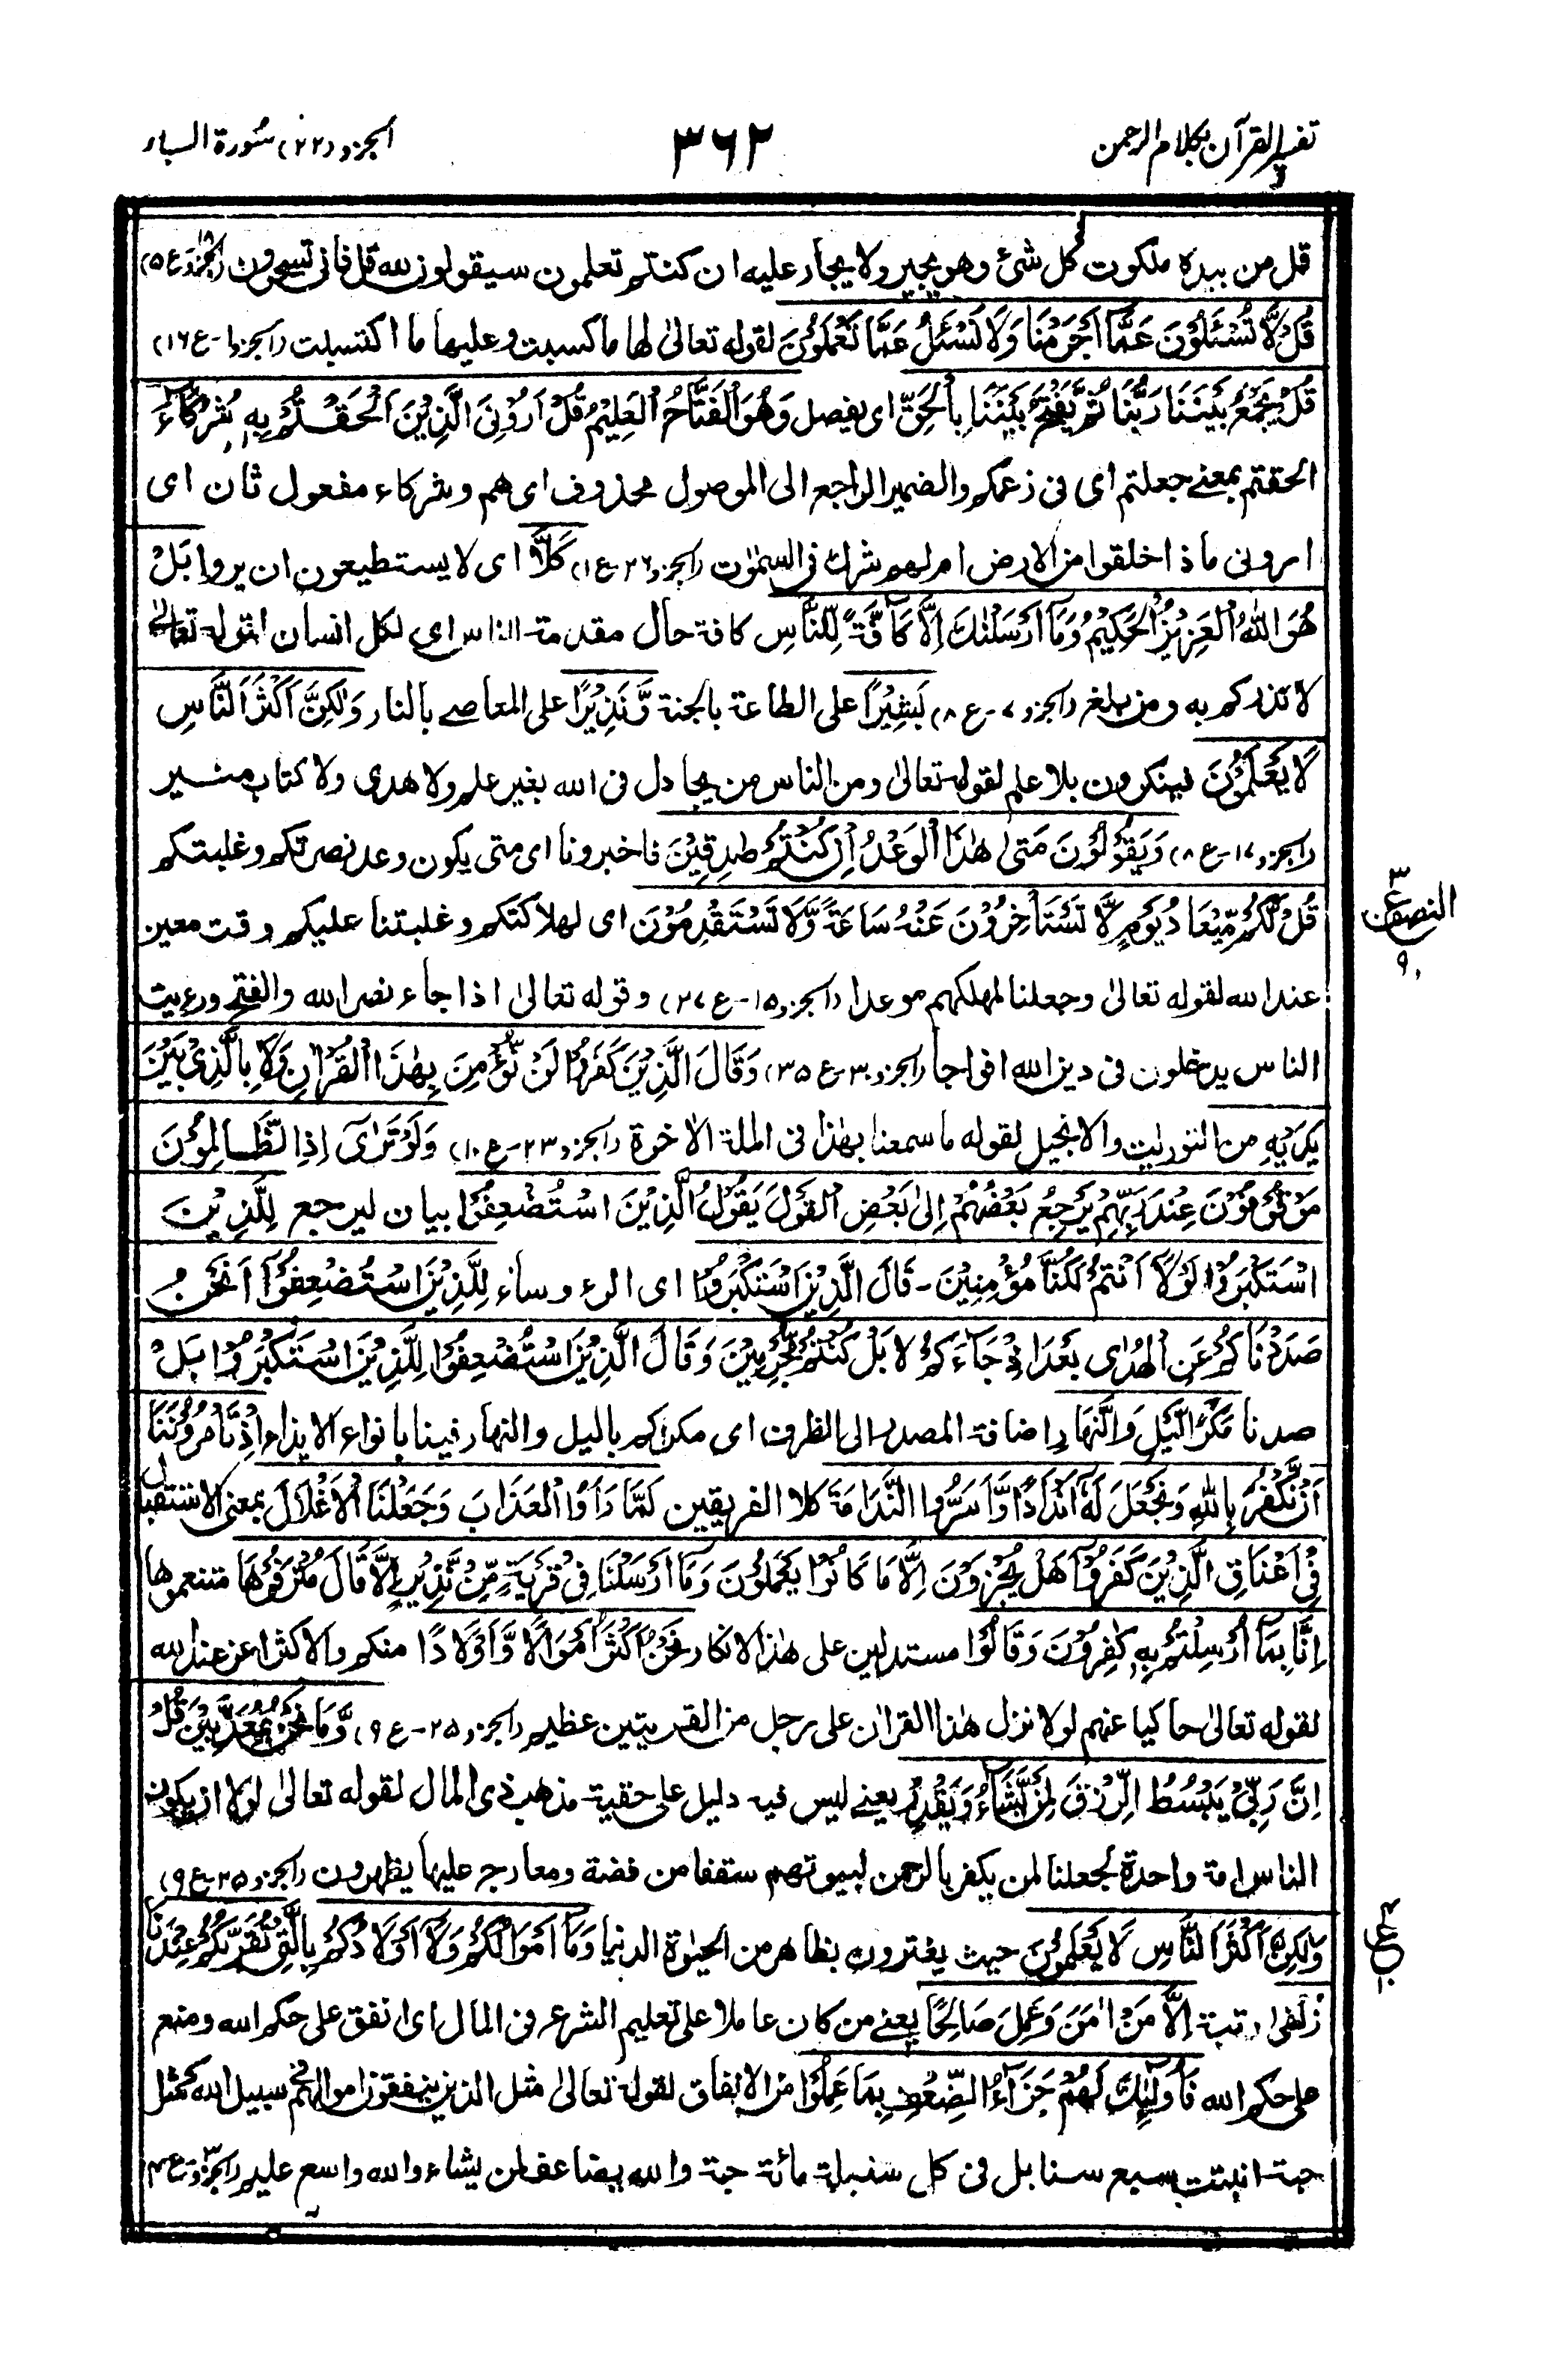 تفسير القرآن بكلام الرحمن
٣٦٢
الجزو (٢٢) سُورة السباء
قل من بيده ملكوت كل شئ وهو يجير ولا يجار عليه ان كنتم تعلمون سيقولون لله قل فانى تسحرون (الجزو ١٨ ع ٥)
قُلْ لَّا تُسْئَلُوْنَ عَمَّآ اَجْرَمْنَا وَلَا نُسْئَلُ عَمَّا تَعْمَلُوْنَ لقوله تعالىٰ لها ما كسبت وعليها ما اكتسبت (الجزو - ع ١٦)
قُلْ يَجْمَعُ بَيْنَنَا رَبُّنَا ثُمَّ يَفْتَحُ بَيْنَنَا بِالْحَقِّ اى يفصل وَهُوَ الْفَتَّاحُ الْعَلِيْمُ قُلْ اَرُوْنِيَ الَّذِيْنَ اَلْحَقْتُمْ بِهٖ شُرَكَآءَ
الحقتم بمعنے جعلتم اى فى زعمكم والضمير الراجع الى الموصول محذوف اى هم وشركاء مفعول ثان اى
ارونى ماذا خلقوا من الارض ام لهم شرك فى السمٰوٰت (الجزو ٢٦ - ع ١) كَلَّا اى لا يستطيعون ان يروا بَلْ
هُوَ اللهُ الْعَزِيْزُ الْحَكِيْمُ وَمَآ اَرْسَلْنٰكَ اِلَّا كَآفَّةً لِّلنَّاسِ كافة حال مقدمة الناس اى لكل انسان لقوله تعالىٰ
لانذركم به ومن بلغ (الجزو ٧ - ع ٨) بَشِيْرًا على الطاعة بالجنة وَّنَذِيْرًا على المعاصے بالنار وَلٰكِنَّ اَكْثَرَ النَّاسِ
لَا يَعْلَمُوْنَ فينكرون بلا علم لقوله تعالىٰ ومن الناس من يجادل فى الله بغير علم ولا هدى ولا كتاب منير
(الجزو ١٧ - ع ٨) وَيَقُوْلُوْنَ مَتىٰ هٰذَا الْوَعْدُ اِنْ كُنْتُمْ صٰدِقِيْنَ فاخبرونا اى متى يكون وعد نصرتكم وغلبتكم
قُلْ لَّكُمْ مِّيْعَادُ يَوْمٍ لَّا تَسْتَأْخِرُوْنَ عَنْهُ سَاعَةً وَّلَا تَسْتَقْدِمُوْنَ اى لهلاكتكم وغلبتنا عليكم وقت معين
عند الله لقوله تعالىٰ وجعلنا لمهلكهم موعدا (الجزو ١٥ - ع ٢٧) وقوله تعالىٰ اذا جاء نصر الله والفتح ورءيت
الناس يدخلون فى دين الله افواجا (الجزو ٣٠ - ع ٣٥) وَقَالَ الَّذِيْنَ كَفَرُوْا لَنْ نُّؤْمِنَ بِهٰذَا الْقُرْاٰنِ وَلَا بِالَّذِيْ بَيْنَ
يَدَيْهِ من التوريٰت والانجيل لقوله ما سمعنا بهٰذا فى الملة الاٰخرة (الجزو ٢٣ - ع ١٠) وَلَوْ تَرٰىٓ اِذِ الظّٰالِمُوْنَ
مَوْقُوْفُوْنَ عِنْدَ رَبِّهِمْ يَرْجِعُ بَعْضُهُمْ اِلىٰ بَعْضِ اِلْقَوْلَ يَقُوْلُ الَّذِيْنَ اسْتُضْعِفُوْا بيان ليرجع لِلَّذِيْنَ
اسْتَكْبَرُوْا لَوْلَآ اَنْتُمْ لَكُنَّا مُؤْمِنِيْنَ - قَالَ الَّذِيْنَ اسْتَكْبَرُوْا اى الرءوساء لِلَّذِيْنَ اسْتُضْعِفُوْآ اَنَحْنُ
صَدَدْنَاكُمْ عَنِ الْهُدٰى بَعْدَ اِذْ جَآءَكُمْ لا بَلْ كُنْتُمْ مُّجْرِمِيْنَ وَقَالَ الَّذِيْنَ اسْتُضْعِفُوْا لِلَّذِيْنَ اسْتَكْبَرُوْا بَلْ
صدنا مَكْرُ الَّيْلِ وَالنَّهَارِ اضافة المصدر الى الظرف اى مكركم بالليل والنهار فينا بانواع الايذاء اِذْ تَأْمُرُوْنَنَا
اَنْ نَّكْفُرَ بِاللهِ وَنَجْعَلَ لَهٗٓ اَنْدَادًا وَّاَسَرُّوا النَّدَامَةَ كلا الفريقين لَمَّا رَاَوُا الْعَذَابَ وَجَعَلْنَا الْاَغْلَالَ بمعنى الاستقبال
فِيْٓ اَعْنَاقِ الَّذِيْنَ كَفَرُوْآ هَلْ يُجْزَوْنَ اِلَّا مَا كَانُوْا يَعْمَلُوْنَ وَمَآ اَرْسَلْنَا فِيْ قَرْيَةٍ مِّنْ نَّذِيْرٍ اِلَّا قَالَ مُتْرَفُوْهَا متنعموها
اِنَّا بِمَآ اُرْسِلْتُمْ بِهٖ كٰفِرُوْنَ وَقَالُوْا مستدلين على هٰذا الانكار نَحْنُ اَكْثَرُ اَمْوَالًا وَّاَوْلَادًا منكم والاكثر اعز عند الله
لقوله تعالىٰ حاكيا عنهم لولا نزل هٰذا القراٰن على رجل من القريتين عظيم (الجزو ٢٥ - ع ٩) وَّمَا نَحْنُ بِمُعَذَّبِيْنَ قُلْ
اِنَّ رَبِّيْ يَبْسُطُ الرِّزْقَ لِمَنْ يَّشَآءُ وَيَقْدِرُ يعنے ليس فيه دليل على حقية مذهب ذى المال لقوله تعالىٰ لولا ان يكون
الناس امة واحدة لجعلنا لمن يكفر بالرحمن لبيوتهم سقفا من فضة ومعارج عليها يظهرون (الجزو ٢٥ - ع ٩)
وَلٰكِنَّ اَكْثَرَ النَّاسِ لَا يَعْلَمُوْنَ حيث يغترون بظاهر من الحيٰوة الدنيا وَمَآ اَمْوَالُكُمْ وَلَآ اَوْلَادُكُمْ بِالَّتِيْ تُقَرِّبُكُمْ عِنْدَنَا
زُلْفىٰ رتبة اِلَّا مَنْ اٰمَنَ وَعَمِلَ صَالِحًا يعنے من كان عاملا على تعليم الشرع فى المال اى انفق على حكم الله ومنع
على حكم الله فَاُولٰٓئِكَ لَهُمْ جَزَآءُ الضِّعْفِ بِمَا عَمِلُوْا من الانفاق لقوله تعالىٰ مثل الذين ينفقون اموالهم فى سبيل الله كمثل
حبة انبتت سبع سنابل فى كل سنبلة مائة حبة والله يضاعف لمن يشاء والله واسع عليم (الجزو ٣ ع ٤)
النصف
ع
٣
٩
ع
٤
١٠